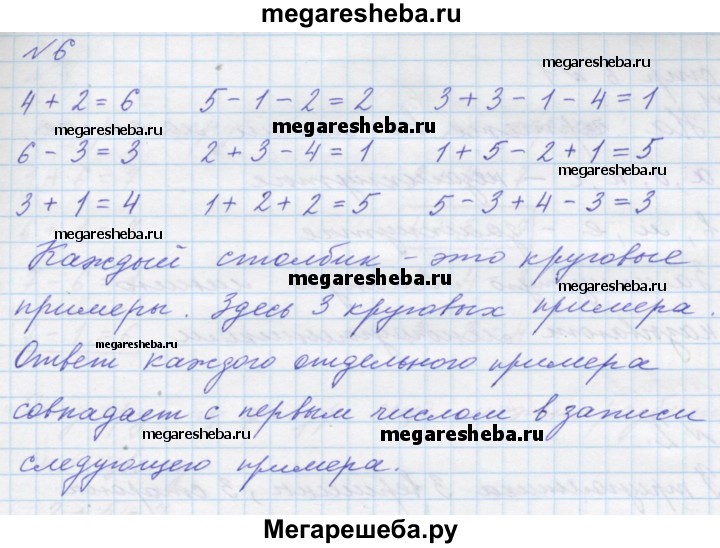 megaresheba.ru
№6
megaresheba.ru
4 + 2 = 6 5 - 1 - 2 = 2 3 + 3 - 1 - 4 = 1
megaresheba.ru megaresheba.ru megaresheba.ru
6 - 3 = 3 2 + 3 - 4 = 1 1 + 5 - 2 + 1 = 5
3 + 1 = 4 1 + 2 + 2 = 5 5 - 3 + 4 - 3 = 3
megaresheba.ru megaresheba.ru
Каждый столбик - это круговые
megaresheba.ru
примеры. Здесь 3 круговых примера.
megaresheba.ru
Ответ каждого отдельного примера
совпадает с первым числом в записи
megaresheba.ru megaresheba.ru
следующего примера.
Мегарешеба.ру